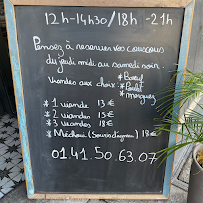 12h-14h30/18h-21h
Pensez à reserver vos couscous
du jeudi midi au samedi soir.
Viandes aux choix: * Bœuf
* Poulet
* merguez
* 1 viande 13 €
* 2 viandes 15 €
* 3 viandes 18 €
* Méchoui (Souris d'agneau) 18 €
01.41.50.63.07